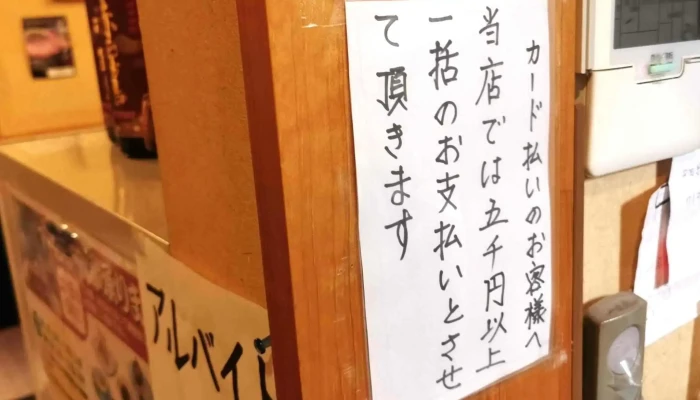 カード払いのお客様へ
当店では五千円以上
一括のお支払いとさせ
て頂きます
アルバイ